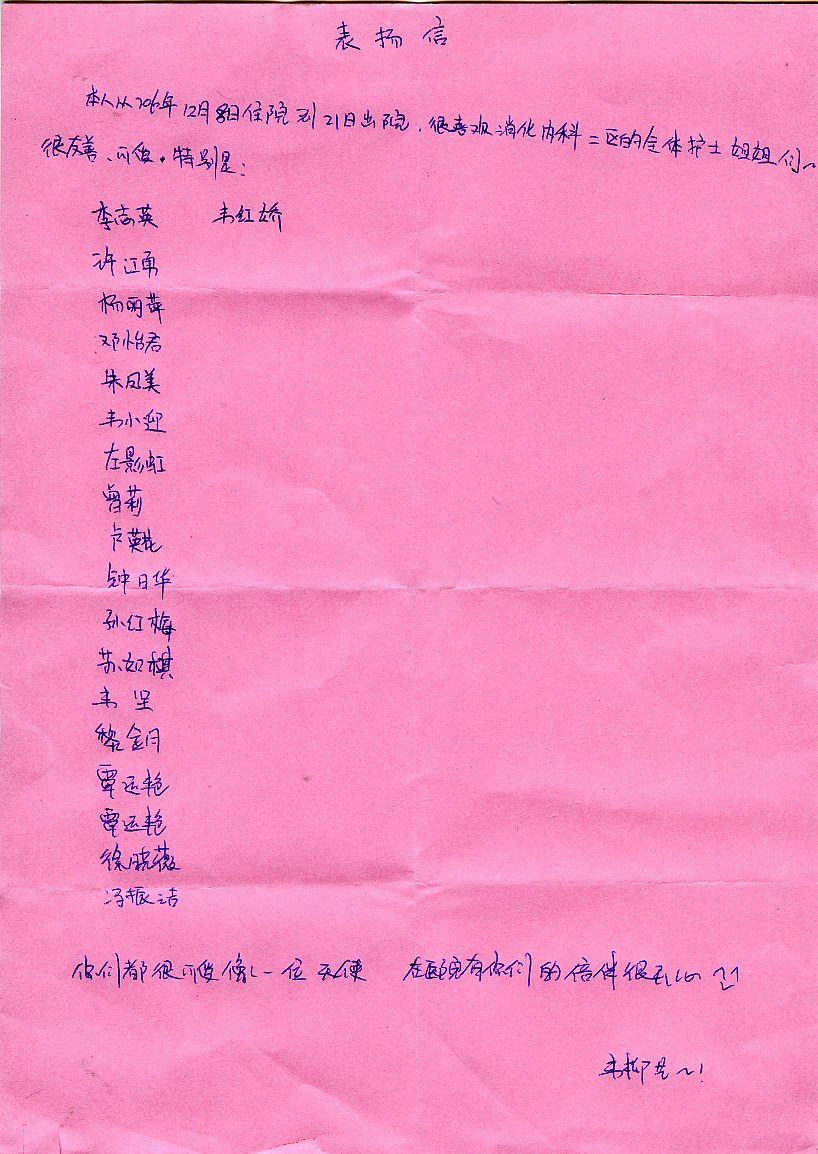 表扬信
本人从2016年12月8日住院到21日出院，很喜欢消化内科二区的全体护士姐姐们~
很友善、可爱。特别是：
李志英 韦红娇
许江勇
杨丽萍
邓怡君
朱凤美
韦小迎
左影虹
曾莉
卢英
钟日华
孙红梅
苏如棋
韦坚
黎金月
覃运艳
覃运艳
徐晓薇
冯振洁
你们都很可爱像一位天使 在医院有你们的倍伴很开心
韦柳~!